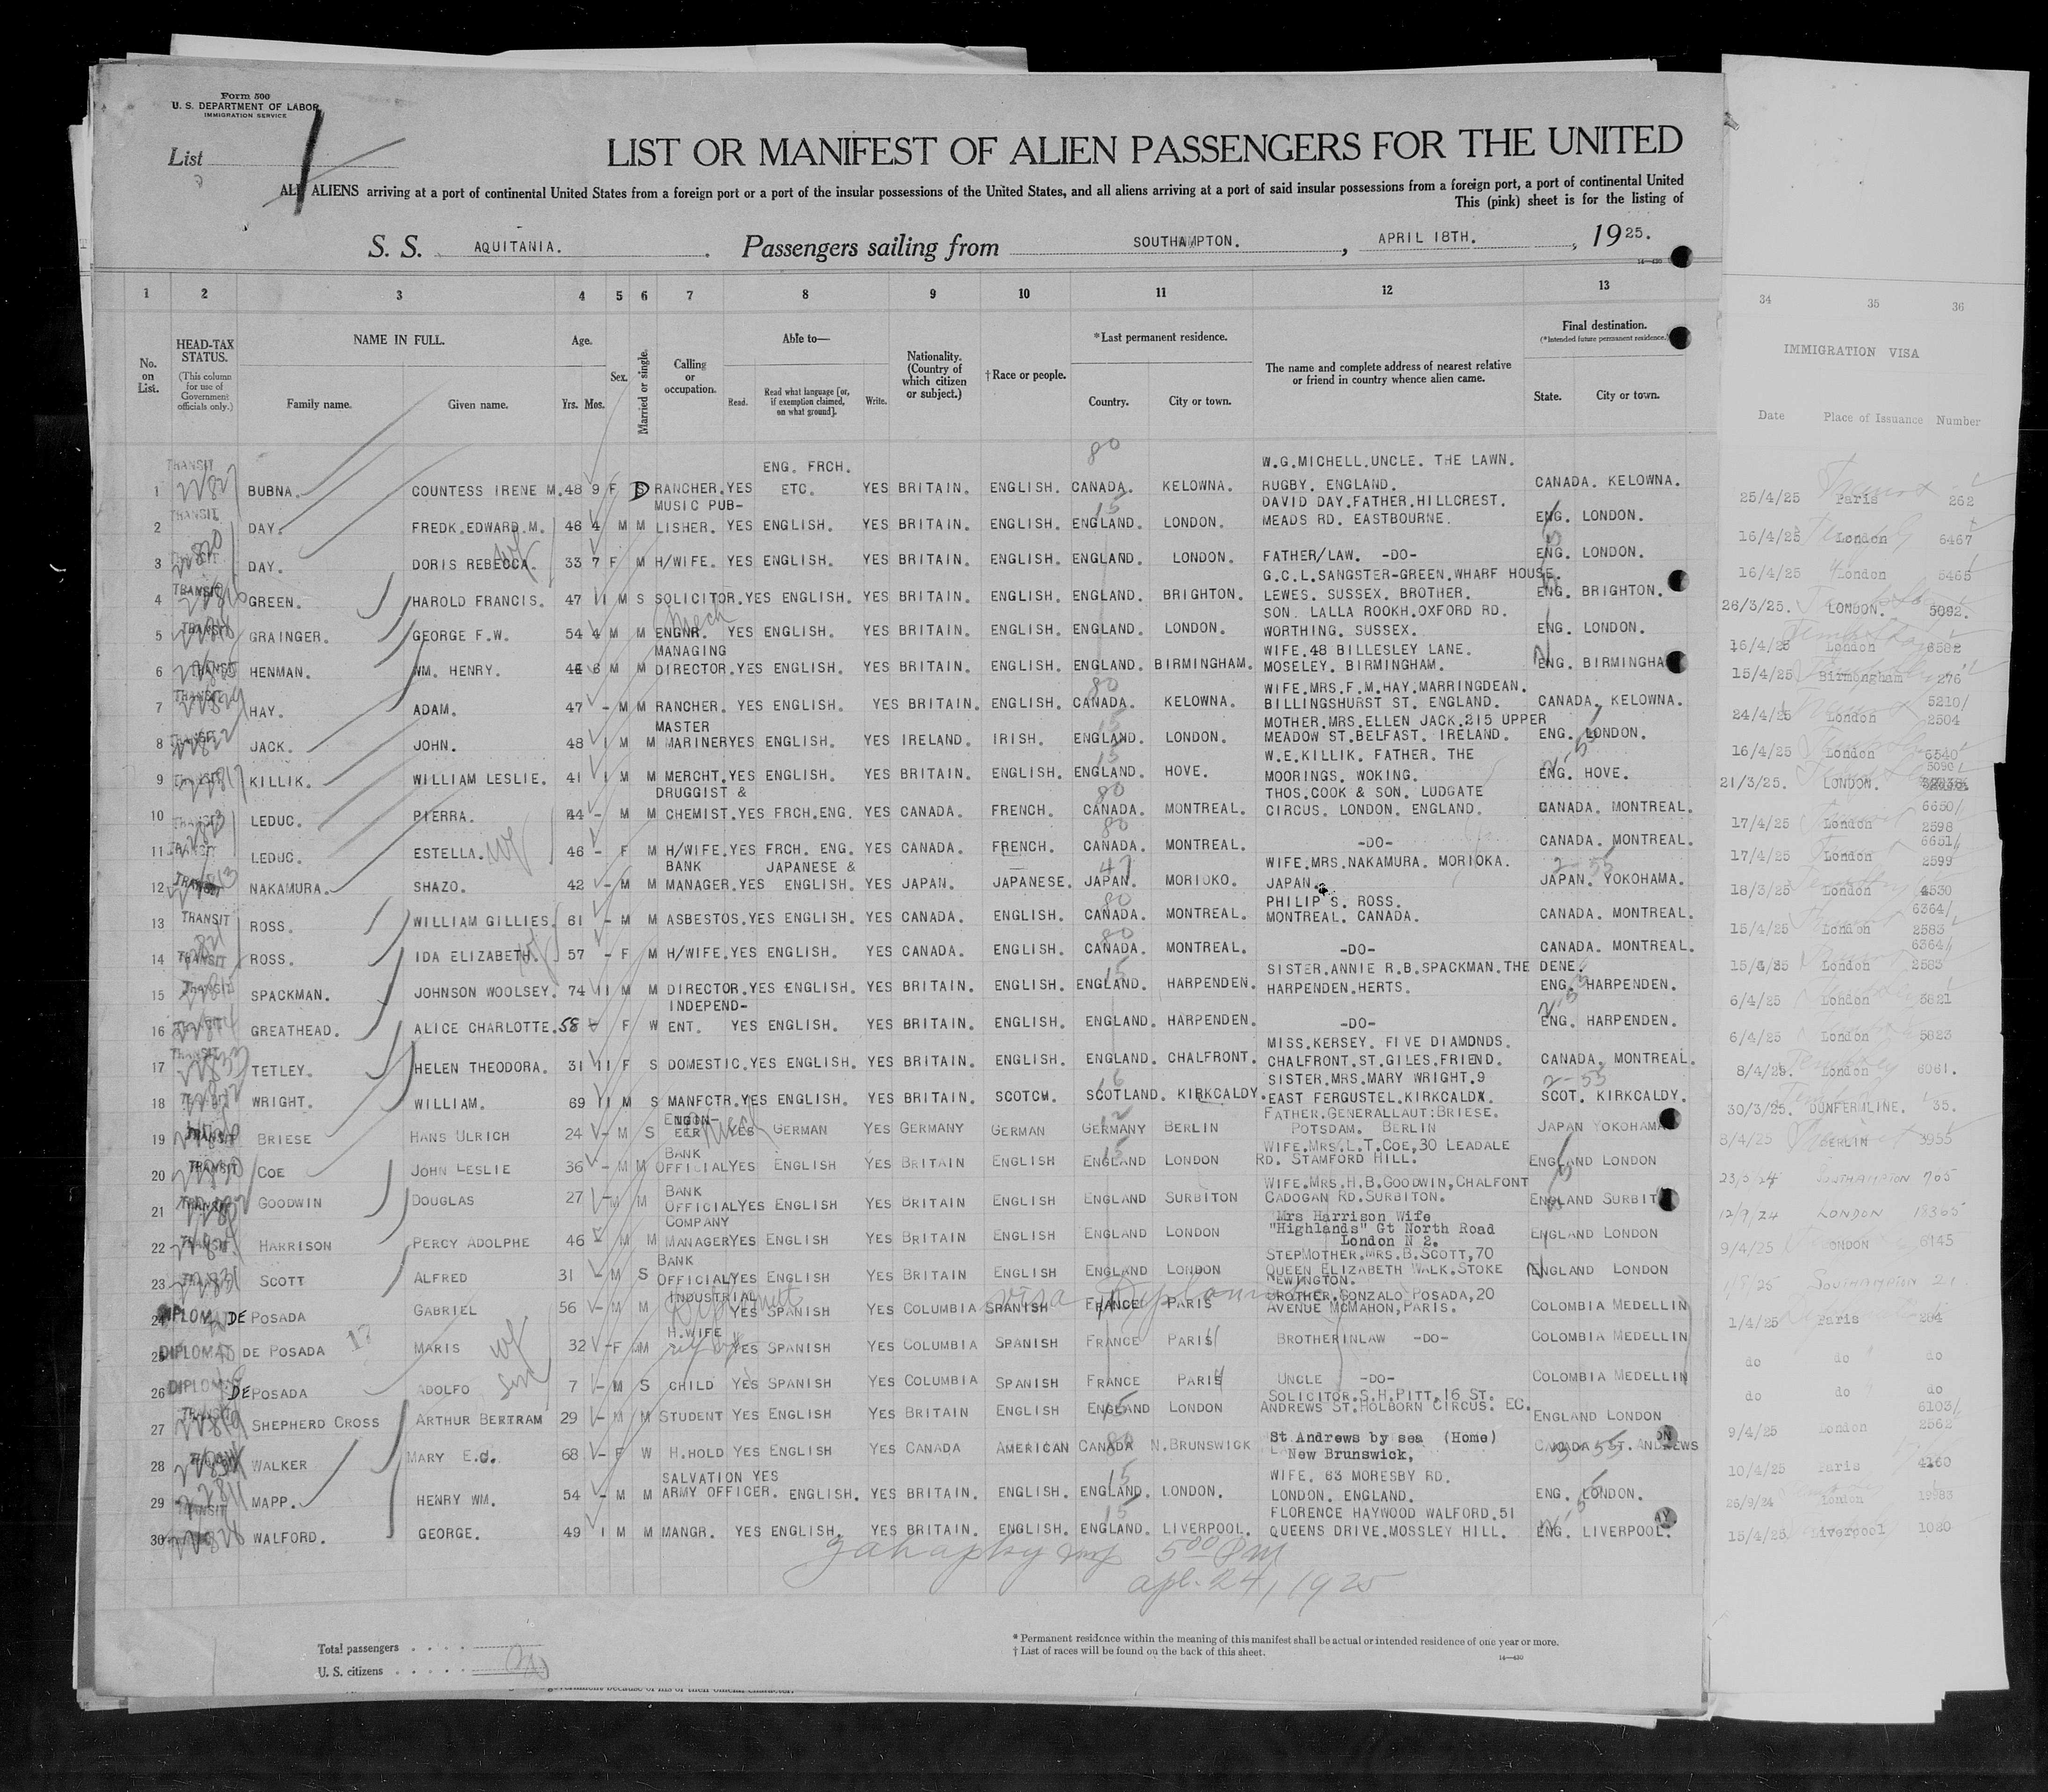 Form 500
U. S. DEPARTMENT OF LABOR
IMMIGRATION SERVICE
List
LIST OR MANIFEST OF ALIEN PASSENGERS FOR THE UNITED
ALL ALIENS arriving at a port of continental United States from a foreign port or a port of the insular possessions of the United States, and all aliens arriving at a port of said insular possessions from a foreign port, a port of continental United
This (pink) sheet is for the listing of
S. S. AQUITANIA. Passengers sailing from SOUTHAMPTON. , APRIL 18TH. , 1925.
14—430
1 2 3 4 5 6 7 8 9 10 11 12 13 34 35 36
No. on List.
HEAD-TAX STATUS.
(This column for use of Government officials only.)
NAME IN FULL.
Family name. Given name.
Age.
Yrs. Mos.
Sex.
Married or single.
Calling or occupation.
Able to—
Read. Read what language [or, if exemption claimed, on what ground]. Write.
Nationality. (Country of which citizen or subject.)
†Race or people.
*Last permanent residence.
Country. City or town.
The name and complete address of nearest relative or friend in country whence alien came.
Final destination.
(*Intended future permanent residence.)
State. City or town.
IMMIGRATION VISA
Date Place of Issuance Number
1 TRANSIT BUBNA. COUNTESS IRENE M. 48 9 F D RANCHER. YES ENG. FRCH. ETC. YES BRITAIN. ENGLISH. CANADA. KELOWNA. W.G.MICHELL.UNCLE. THE LAWN. RUGBY. ENGLAND. CANADA. KELOWNA. 25/4/25 Paris 262
2 TRANSIT DAY. FREDK.EDWARD.M. 46 4 M M MUSIC PUB-LISHER. YES ENGLISH. YES BRITAIN. ENGLISH. ENGLAND. LONDON. DAVID DAY.FATHER.HILLCREST. MEADS RD. EASTBOURNE. ENG. LONDON. 16/4/25 London 6467
3 DAY. DORIS REBECCA. 33 7 F M H/WIFE. YES ENGLISH. YES BRITAIN. ENGLISH. ENGLAND. LONDON. FATHER/LAW. -DO- ENG. LONDON. 16/4/25 London 6465
4 TRANSIT GREEN. HAROLD FRANCIS. 47 11 M S SOLICITOR. YES ENGLISH. YES BRITAIN. ENGLISH. ENGLAND. BRIGHTON. G.C.L.SANGSTER-GREEN.WHARF HOUSE. LEWES. SUSSEX. BROTHER. ENG. BRIGHTON. 26/3/25. LONDON. 5082.
5 TRANSIT GRAINGER. GEORGE F.W. 54 4 M M ENGNR. Mech YES ENGLISH. YES BRITAIN. ENGLISH. ENGLAND. LONDON. SON. LALLA ROOKH.OXFORD RD. WORTHING. SUSSEX. ENG. LONDON. 16/4/25 London 6582
6 TRANSIT HENMAN. WM. HENRY. 44 6 M M MANAGING DIRECTOR. YES ENGLISH. YES BRITAIN. ENGLISH. ENGLAND. BIRMINGHAM. WIFE.48 BILLESLEY LANE. MOSELEY. BIRMINGHAM. ENG. BIRMINGHA 15/4/25 Birmongham 276
7 TRANSIT HAY. ADAM. 47 - M M RANCHER. YES ENGLISH. YES BRITAIN. ENGLISH. CANADA. KELOWNA. WIFE.MRS.F.M.HAY.MARRINGDEAN. BILLINGSHURST ST. ENGLAND. CANADA. KELOWNA. 24/4/25 London 5210/ 2504
8 TRANSIT JACK. JOHN. 48 1 M M MASTER MARINER YES ENGLISH. YES IRELAND. IRISH. ENGLAND. LONDON. MOTHER.MRS.ELLEN JACK.215 UPPER MEADOW ST.BELFAST. IRELAND. ENG. LONDON. 16/4/25 London 6540
9 KILLIK. WILLIAM LESLIE. 41 1 M M MERCHT. YES ENGLISH. YES BRITAIN. ENGLISH. ENGLAND. HOVE. W.E.KILLIK. FATHER. THE MOORINGS. WOKING. ENG. HOVE. 21/3/25. LONDON.
10 LEDUC. PIERRA. 44 - M M DRUGGIST & CHEMIST. YES FRCH.ENG. YES CANADA. FRENCH. CANADA. MONTREAL. THOS.COOK & SON. LUDGATE CIRCUS. LONDON. ENGLAND. CANADA. MONTREAL. 17/4/25 London 6650/ 2598
11 LEDUC. ESTELLA. wf 46 - F M H/WIFE. YES FRCH. ENG. YES CANADA. FRENCH. CANADA. MONTREAL. -DO- CANADA. MONTREAL. 17/4/25 London 6651/ 2599
12 NAKAMURA. SHAZO. 42 - M M BANK MANAGER. YES JAPANESE & ENGLISH. YES JAPAN. JAPANESE. JAPAN. MORIOKO. WIFE.MRS.NAKAMURA. MORIOKA. JAPAN. JAPAN. YOKOHAMA. 18/3/25 London 4530
13 TRANSIT ROSS. WILLIAM GILLIES. 61 - M M ASBESTOS. YES ENGLISH. YES CANADA. ENGLISH. CANADA. MONTREAL. PHILIP S. ROSS. MONTREAL. CANADA. CANADA. MONTREAL. 15/4/25 London 6364/ 2583
14 TRANSIT ROSS. IDA ELIZABETH. wf 57 - F M H/WIFE. YES ENGLISH. YES CANADA. ENGLISH. CANADA. MONTREAL. -DO- CANADA. MONTREAL. 15/4/25 London 6364/ 2583
15 TRANSIT SPACKMAN. JOHNSON WOOLSEY. 74 11 M M DIRECTOR. YES ENGLISH. YES BRITAIN. ENGLISH. ENGLAND. HARPENDEN. SISTER.ANNIE R.B.SPACKMAN.THE DENE. HARPENDEN.HERTS. ENG. HARPENDEN. 6/4/25 London 5821
16 GREATHEAD. ALICE CHARLOTTE. 58 - F W INDEPEND-ENT. YES ENGLISH. YES BRITAIN. ENGLISH. ENGLAND. HARPENDEN. -DO- ENG. HARPENDEN. 6/4/25 London 5823
17 TRANSIT TETLEY. HELEN THEODORA. 31 11 F S DOMESTIC. YES ENGLISH. YES BRITAIN. ENGLISH. ENGLAND. CHALFRONT. MISS.KERSEY. FIVE DIAMONDS. CHALFRONT.ST.GILES.FRIEND. CANADA. MONTREAL. 8/4/25. London 6061.
18 WRIGHT. WILLIAM. 69 11 M S MANFCTR. YES ENGLISH. YES BRITAIN. SCOTCH. SCOTLAND. KIRKCALDY. SISTER.MRS.MARY WRIGHT.9 EAST FERGUSTEL.KIRKCALDY. SCOT. KIRKCALDY. 30/3/25. DUNFERMLINE. 35.
19 TRANSIT BRIESE HANS ULRICH 24 - M S ENGIN-EER Mech YES GERMAN YES GERMANY GERMAN GERMANY BERLIN FATHER.GENERALLAUT:BRIESE. POTSDAM. BERLIN JAPAN YOKOHAMA 8/4/25 BERLIN 3955
20 TRANSIT COE JOHN LESLIE 36 - M M BANK OFFICIAL YES ENGLISH YES BRITAIN ENGLISH ENGLAND LONDON WIFE.MRS.L.T.COE,30 LEADALE RD. STAMFORD HILL. ENGLAND LONDON SOUTHAMPTON 705
21 GOODWIN DOUGLAS 27 - M M BANK OFFICIAL YES ENGLISH YES BRITAIN ENGLISH ENGLAND SURBITON WIFE.MRS.H.B.GOODWIN,CHALFONT CADOGAN RD.SURBITON. ENGLAND SURBIT 12/9/24 LONDON 18365
22 HARRISON PERCY ADOLPHE 46 - M M COMPANY MANAGER YES ENGLISH YES BRITAIN ENGLISH ENGLAND LONDON Mrs Harrison Wife "Highlands" Gt North Road London N 2. ENGLAND LONDON 9/4/25 LONDON 6145
23 SCOTT ALFRED 31 - M S BANK OFFICIAL YES ENGLISH YES BRITAIN ENGLISH ENGLAND LONDON STEPMOTHER.MRS.B.SCOTT,70 QUEEN ELIZABETH WALK.STOKE NEWINGTON. ENGLAND LONDON SOUTHAMPTON 21
24 DIPLOMAT DE POSADA GABRIEL 56 - M M INDUSTRIAL Diplomat YES SPANISH YES COLUMBIA SPANISH visa Diplomatic FRANCE PARIS BROTHER.GONZALO POSADA,20 AVENUE MCMAHON,PARIS. COLOMBIA MEDELLIN 1/4/25 Paris 284
25 DIPLOMAT DE POSADA MARIS wf 32 - F M H.WIFE YES SPANISH YES COLUMBIA SPANISH FRANCE PARIS BROTHERINLAW -DO- COLOMBIA MEDELLIN do do do
26 DIPLOMAT DE POSADA ADOLFO son 7 - M S CHILD YES SPANISH YES COLUMBIA SPANISH FRANCE PARIS UNCLE -DO- COLOMBIA MEDELLIN do do do
27 TRANSIT SHEPHERD CROSS ARTHUR BERTRAM 29 - M M STUDENT YES ENGLISH YES BRITAIN ENGLISH ENGLAND LONDON SOLICITOR.S.H.PITT,16 ST. ANDREWS ST.HOLBORN CIRCUS. EC. ENGLAND LONDON 9/4/25 London 6103/ 2562
28 WALKER MARY E.C. 68 - F W H.HOLD YES ENGLISH YES CANADA AMERICAN CANADA N.BRUNSWICK St Andrews by sea (Home) New Brunswick, CANADA ST. ANDREWS 10/4/25 Paris 4160
29 MAPP. HENRY WM. 54 - M M SALVATION ARMY OFFICER. YES ENGLISH. YES BRITAIN. ENGLISH. ENGLAND. LONDON. WIFE. 63 MORESBY RD. LONDON. ENGLAND. ENG. LONDON. 26/9/24 London 19983
30 TRANSIT WALFORD. GEORGE. 49 1 M M MANGR. YES ENGLISH. YES BRITAIN. ENGLISH. ENGLAND. LIVERPOOL. FLORENCE HAYWOOD WALFORD.51 QUEENS DRIVE.MOSSLEY HILL. ENG. LIVERPOOL. 15/4/25. Liverpool 1020
5 00 Pm
apl. 24, 1925
Total passengers
U. S. citizens
* Permanent residence within the meaning of this manifest shall be actual or intended residence of one year or more.
† List of races will be found on the back of this sheet.
14—430